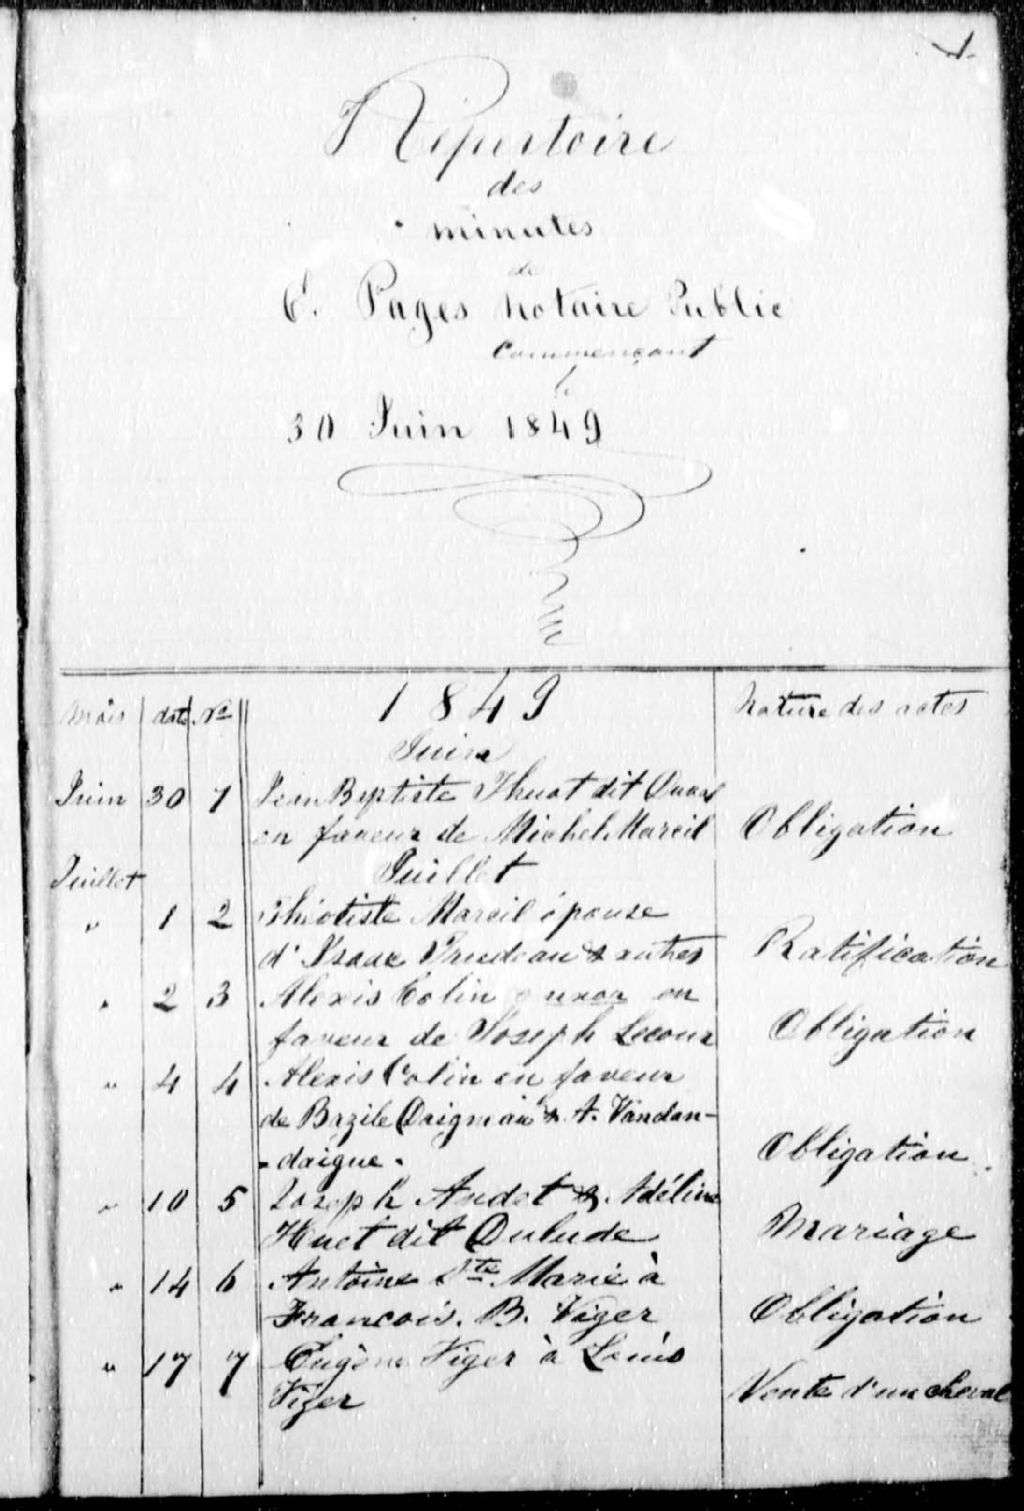 1.
Répertoire
des
minutes
de
E. Pages Notaire Public
Commençant
le
30 Juin 1849
mois date No 1849 Nature des actes
Juin
Juin 30 1 Jean Bptiste Thuot dit Duval
en faveur de Michel Mareil Obligation
Juillet Juillet
" 1 2 Théotiste Mareil épouse
d'Isaac Trudeau & autres Ratification
" 2 3 Alexis Colin & uxor en
faveur de Joseph Lecour Obligation
" 4 4 Alexis Colin en faveur
de Bazile Daigneau & A. Vandan-
-daigue. Obligation
" 10 5 Joseph Audet & Adéline
Huet dit Dulude Mariage
" 14 6 Antoine Ste Marie à
Francois. B. Viger Obligation
" 17 7 Eugène Viger à Louis
Viger Vente d'un cheval